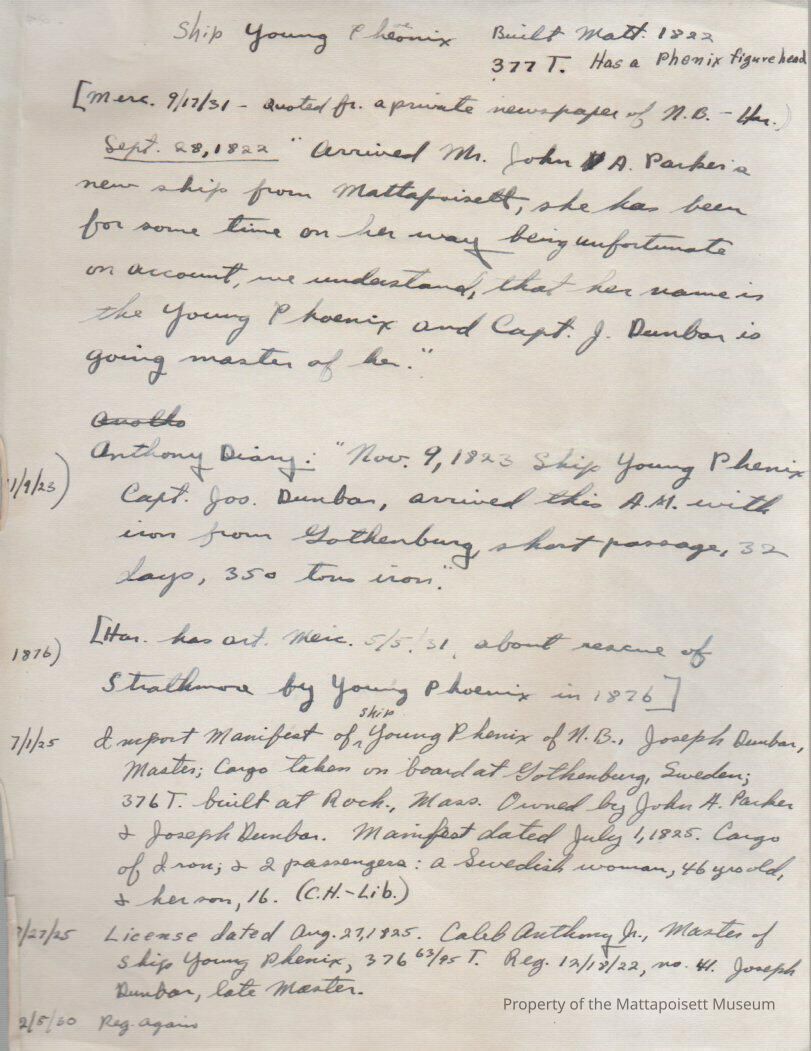 Ship Young Pheonix Built Matt. 1822
377 T. Has a Phenix figurehead
[Merc. 9/17/31 - Quoted fr. a private newspaper of N.B. - Har.)
Sept. 28, 1822 " Arrived Mr. John A. Parker's
new ship from Mattapoisett, she has been
for some time on her way being unfortunate
on account, we understand, that her name is
the Young Phoenix and Capt. J. Dunbar is
going master of her."
Anthony Diary: "Nov. 9, 1823 Ship Young Phenix
1/9/23) Capt. Jos. Dunbar, arrived this A.M. with
iron from Gothenburg, short passage, 32
days, 350 tons iron."
[Har. has art. Merc. 5/5/31, about rescue of
1876) Strathmore by Young Phoenix in 1876]
7/1/25 Import Manifest of ship Young Phenix of N.B., Joseph Dunbar,
Master; Cargo taken on board at Gothenburg, Sweden;
376 T. built at Roch., Mass. Owned by John A. Parker
& Joseph Dunbar. Manifest dated July 1, 1825. Cargo
of Iron; & 2 passengers: a Swedish woman, 46 yrs old,
& her son, 16. (C.H.-Lib.)
/27/25 License dated Aug. 27, 1825. Caleb Anthony Jr., Master of
Ship Young Phenix, 376 63/95 T. Reg. 12/18/22, no. 41. Joseph
Dunbar, late Master.
2/5/60 Reg. again
Property of the Mattapoisett Museum